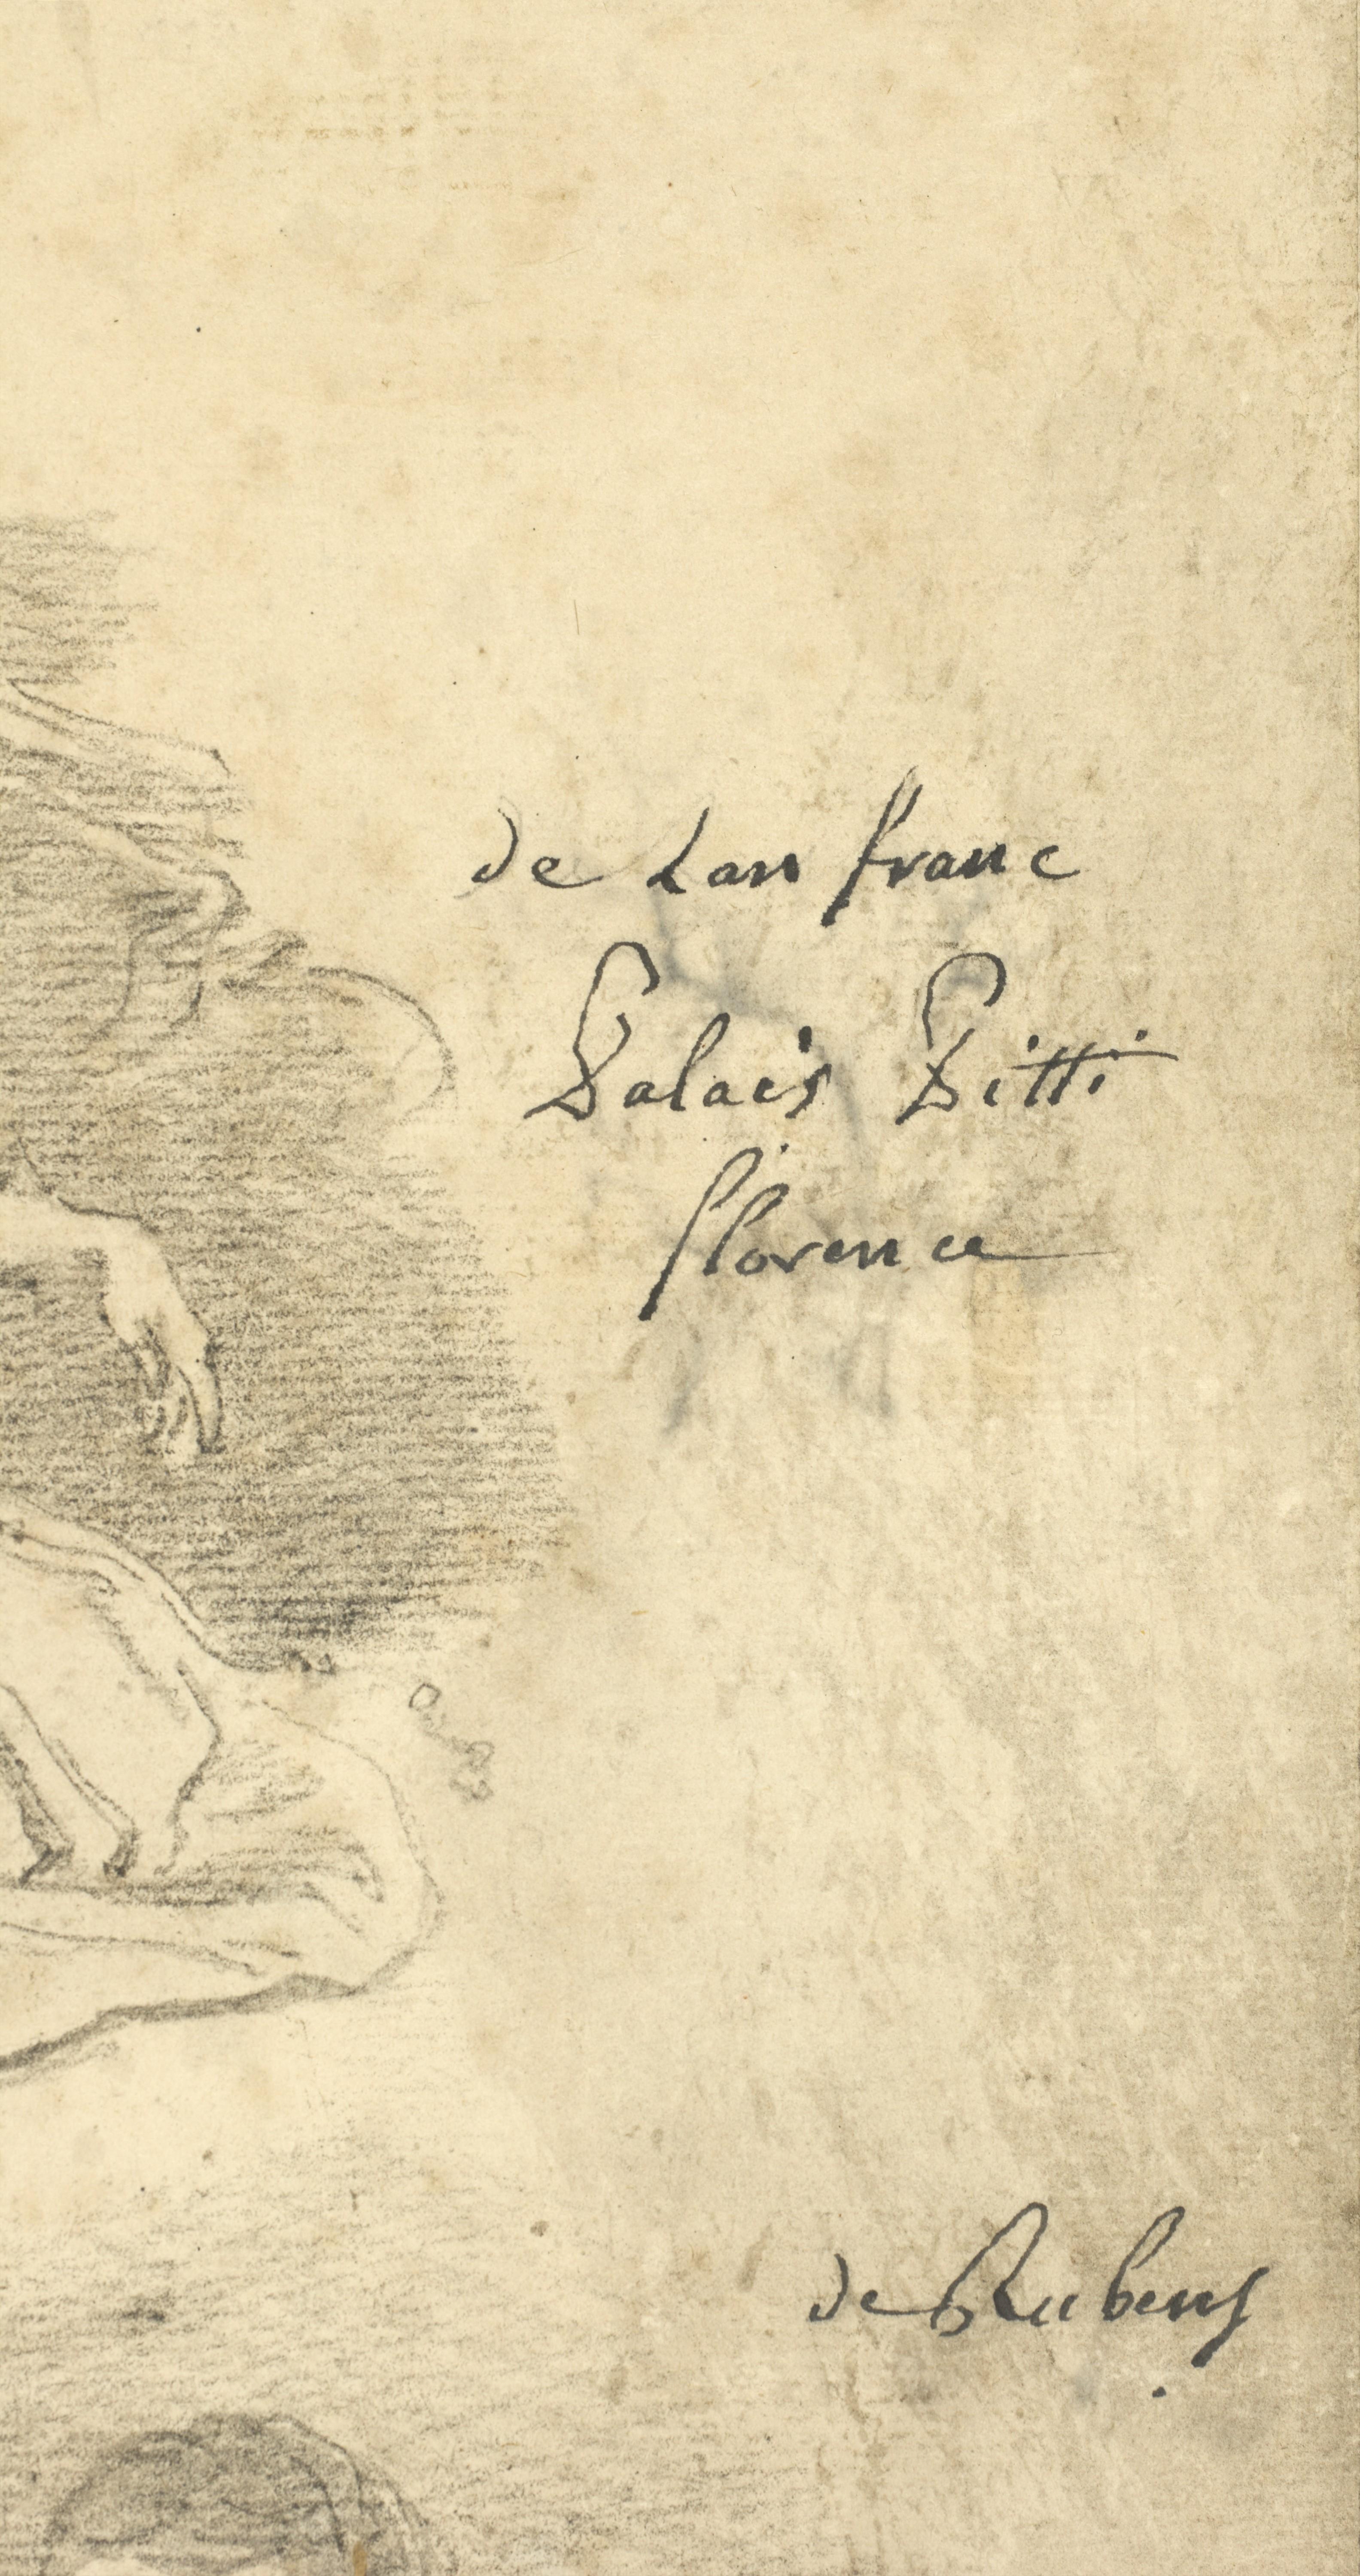 de Lanfranc
Palais Pitti
florence
de Rubens